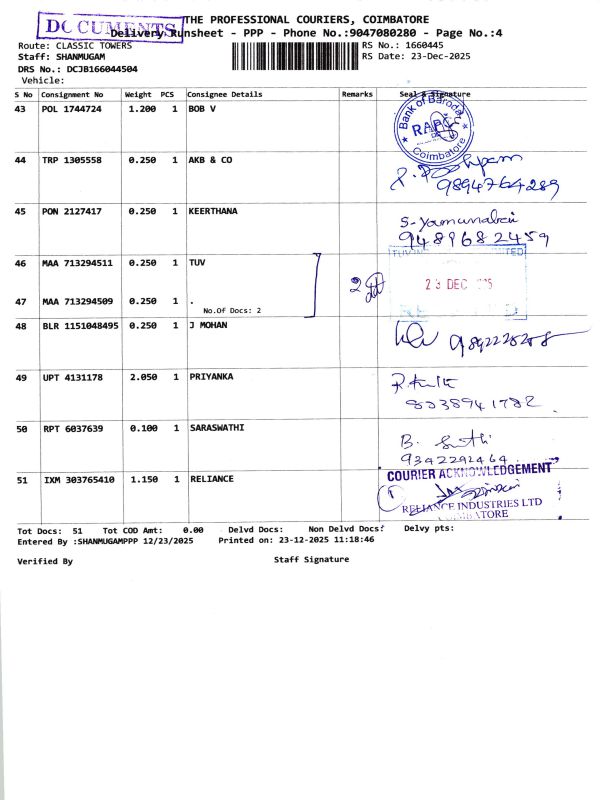 DOCUMENTS
THE PROFESSIONAL COURIERS, COIMBATORE
Delivery Runsheet - PPP - Phone No.:9047080280 - Page No.:4
Route: CLASSIC TOWERS RS No.: 1660445
Staff: SHANMUGAM RS Date: 23-Dec-2025
DRS No.: DCJB166044504
Vehicle:
S No Consignment No Weight PCS Consignee Details Remarks Seal & Signature
43 POL 1744724 1.200 1 BOB V
Bank of Baroda
Coimbatore
44 TRP 1305558 0.250 1 AKB & CO
9894764289
45 PON 2127417 0.250 1 KEERTHANA
9489682459
46 MAA 713294511 0.250 1 TUV
23 DEC
47 MAA 713294509 0.250 1 .
No.Of Docs: 2
48 BLR 1151048495 0.250 1 J MOHAN
49 UPT 4131178 2.050 1 PRIYANKA
50 RPT 6037639 0.100 1 SARASWATHI
9342292464
51 IXM 303765410 1.150 1 RELIANCE
COURIER ACKNOWLEDGEMENT
RELIANCE INDUSTRIES LTD
COIMBATORE
Tot Docs: 51 Tot COD Amt: 0.00 Delvd Docs: Non Delvd Docs: Delvy pts:
Entered By :SHANMUGAMPPP 12/23/2025 Printed on: 23-12-2025 11:18:46
Verified By Staff Signature